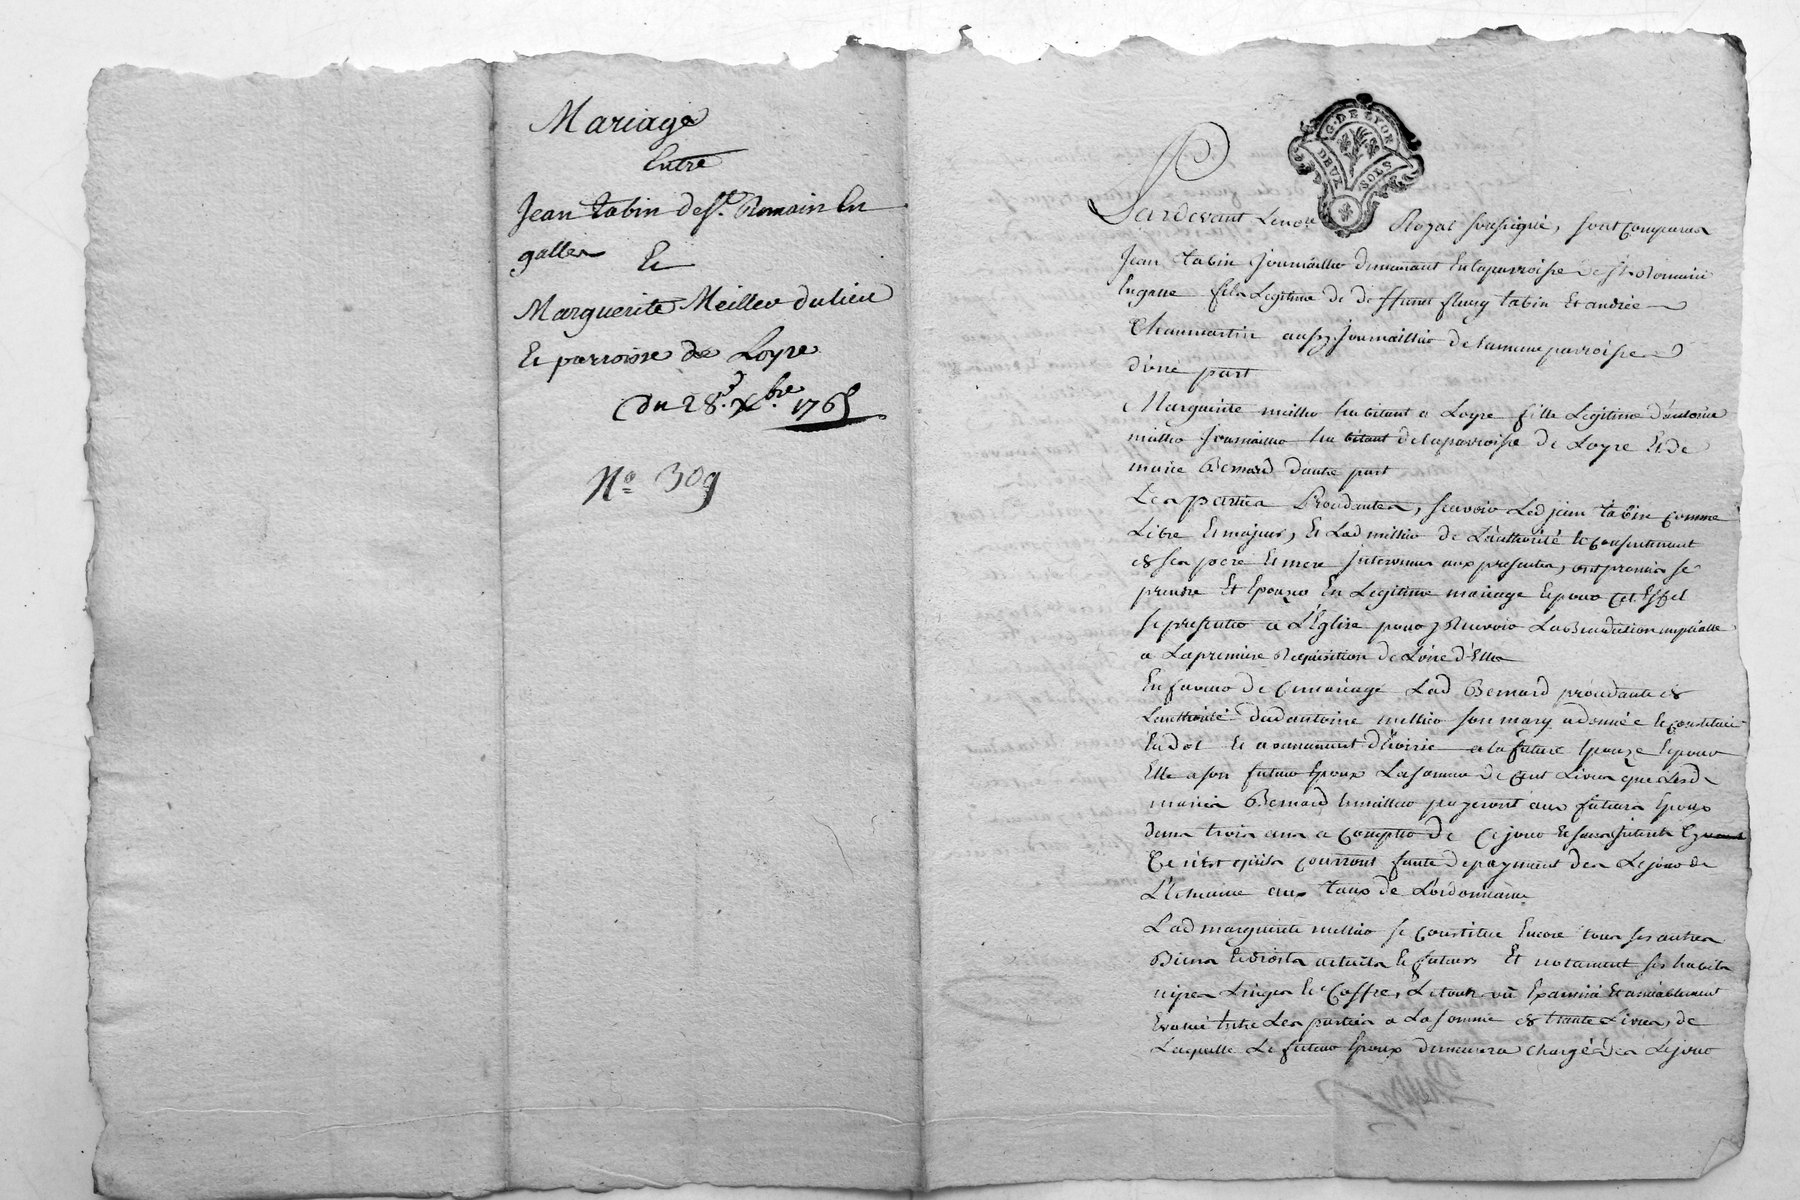 Mariage
Entre
Jean tabin de St. Romain En
gallen
Et
Marguerite Meilleu du lieu
Et parroisse de Loyre
Du 28e. Xbre. 1765
No 309
G. DE LYON
DEUX SOLS
Pardevant Le nore Royal soussigné, sont comparus
Jean tabin Journallier demeurant En la parroisse de St Romain
En galle fils Legitime de deffunt fleury tabin Et andrée
Chaumartin aussy Journallier de la meme parroisse
d'une part
Marguerite meilleu habitant a Loyre fille Legitime d'antoine
meilleu Journallier habitant de la parroisse de Loyre Et de
marie Bernard d'autre part
Les parties Procedantes, scavoir Led jean tabin comme
Libre Et majeur, Et Lad meilleu de L'authorité Et consentement
de ses pere Et mere Intervenus aux presentes, ont promis se
prendre Et Epouzer En Legitime mariage Et pour Cet Effet
se presenter a L'Eglise pour y Recevoir La Benediction nuptialle
a La premiere Requisition de L'une d'Elles
En faveur de Ce mariage Lad Bernard procedante de
L'authorité dud antoine meilleu son mary a donné Et constitué
En Dot Et avancement d'hoirie a la future Epouze Et pour
Elle a son futur Epoux La somme de Cent Livres que Lesd
mariés Bernard Et meilleu payeront aux futurs Epoux
dans trois ans a Compter de Ce jour Et sans Interets
Ce n'est qu'ils courront faute de payement des Le jour de
L'Echeance aux taux de L'ordonnance
Lad marguerite meilleu se Constitue Encore tous ses autres
Biens Et droits actuels Et futurs Et notament ses habits
nipes Linges Et Coffre, Le tout vû Examiné Et amiablement
Evalué Entre Les parties a La somme de trante Livres, de
Laquelle Le futur Epoux demeurera chargé des Le jour